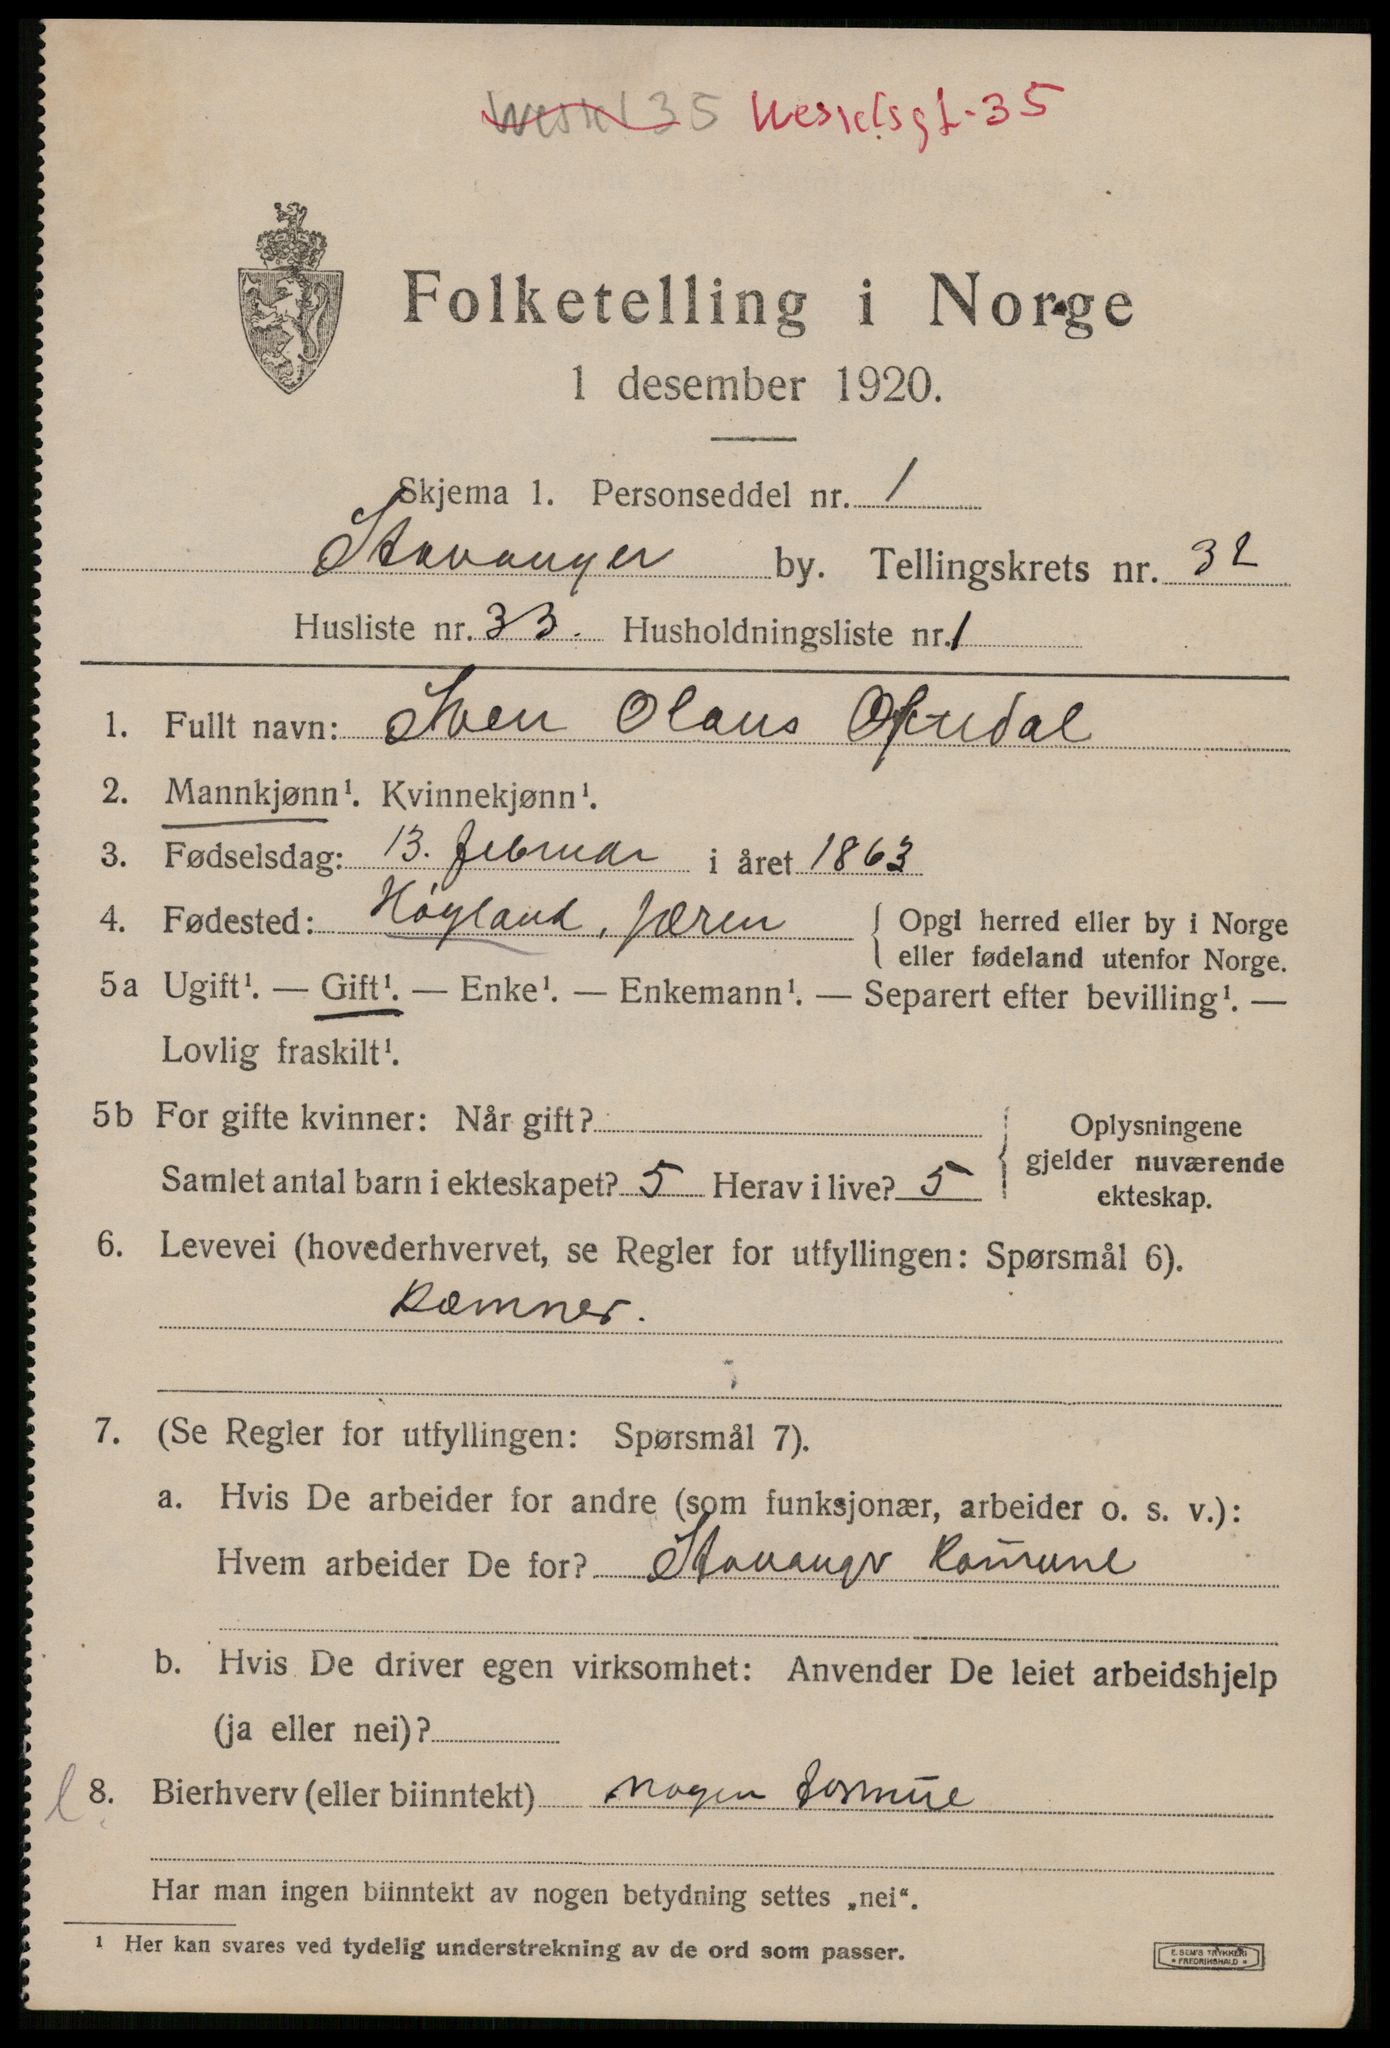 Wessel 35 Wesselsgt. 35
Folketelling i Norge
1 desember 1920.
Skjema 1. Personseddel nr. 1
Stavanger by. Tellingskrets nr. 32
Husliste nr. 33. Husholdningsliste nr. 1
1. Fullt navn: Sven Olaus
2. Mannkjønn¹. Kvinnekjønn¹.
3. Fødselsdag: 13. februar i året 1863
4. Fødested: Høyland, Jæren { Opgi herred eller by i Norge
eller fødeland utenfor Norge.
5a Ugift¹. — Gift¹. — Enke¹. — Enkemann¹. — Separert efter bevilling¹. —
Lovlig fraskilt¹.
5b For gifte kvinner: Når gift? { Oplysningene
gjelder nuværende
ekteskap.
Samlet antal barn i ekteskapet? 5 Herav i live? 5
6. Levevei (hovederhvervet, se Regler for utfyllingen: Spørsmål 6).
Kæmner.
7. (Se Regler for utfyllingen: Spørsmål 7).
a. Hvis De arbeider for andre (som funksjonær, arbeider o. s. v.):
Hvem arbeider De for? Stavanger Komune
b. Hvis De driver egen virksomhet: Anvender De leiet arbeidshjelp
(ja eller nei)?
8. Bierhverv (eller biinntekt) nogen formue
Har man ingen biinntekt av nogen betydning settes „nei“.
¹ Her kan svares ved tydelig understrekning av de ord som passer.
E. SEM'S TRYKKERI
* FREDRIKSHALD *